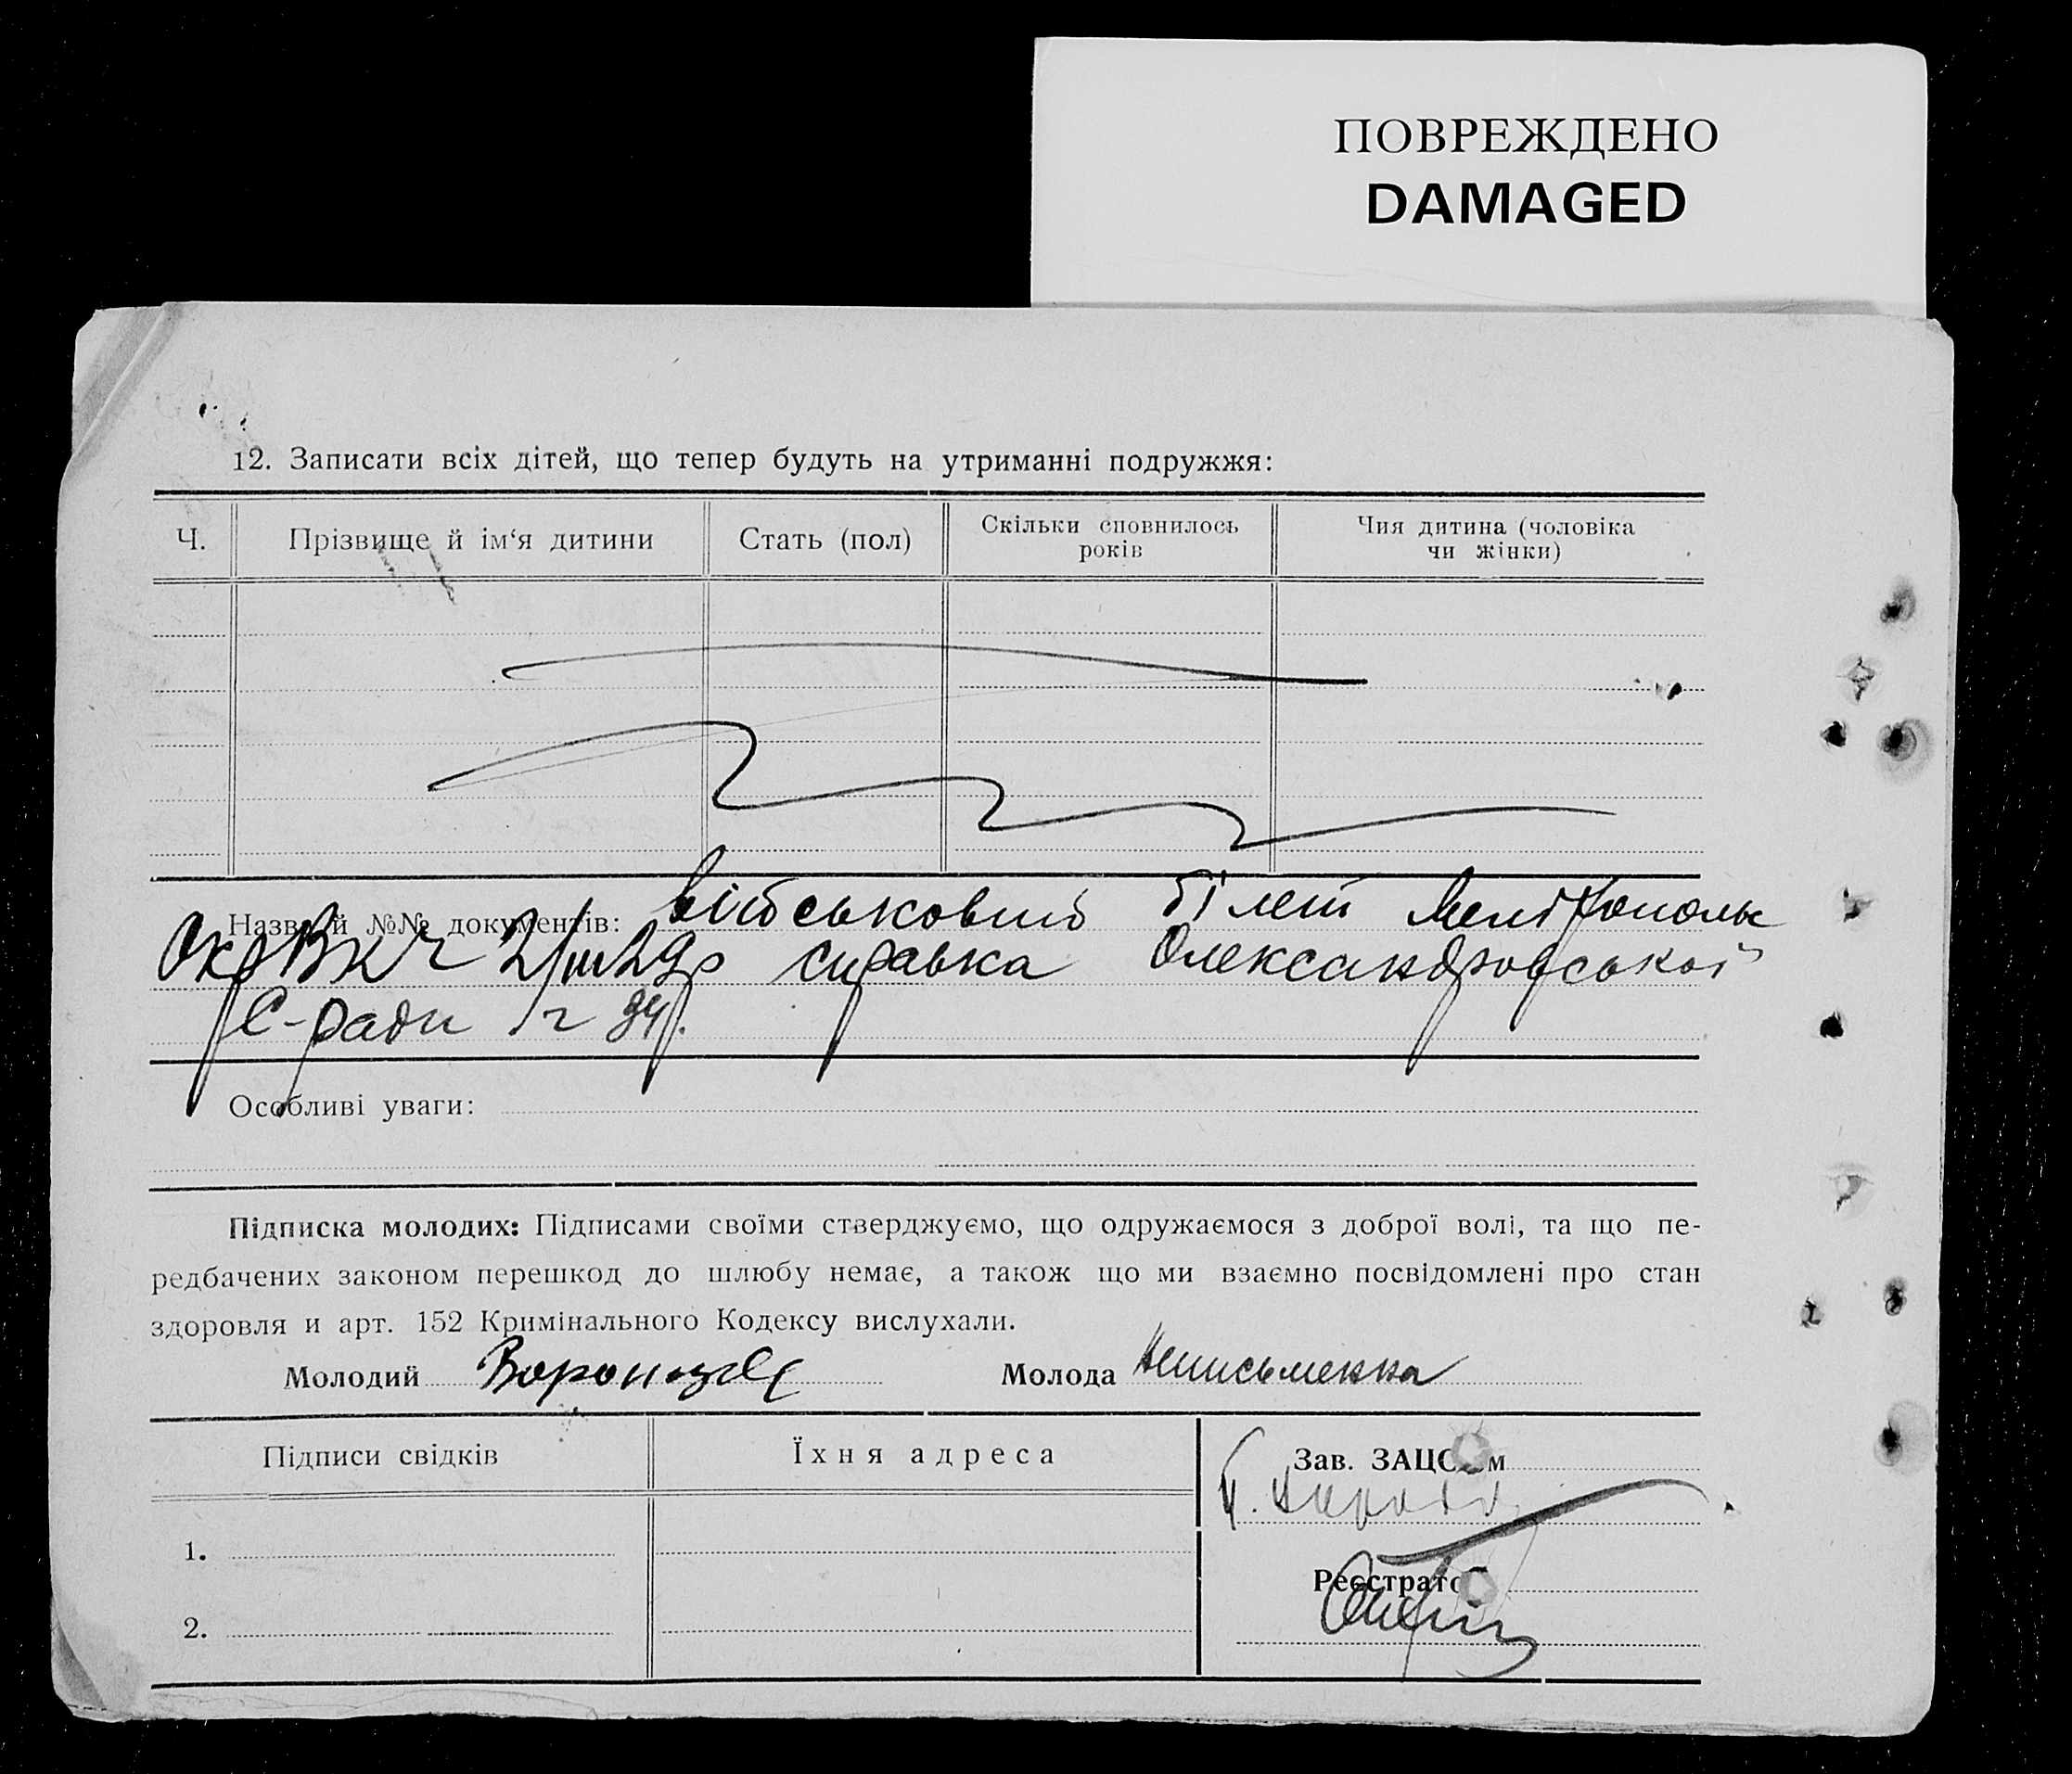 ПОВРЕЖДЕНО
DAMAGED
12. Записати всіх дітей, що тепер будуть на утриманні подружжя:
Ч. Прізвище й ім‘я дитини Стать (пол) Скільки сповнилось років Чия дитина (чоловіка чи жінки)
Назви й №№ документів: військовий білет Мелітополь
справка Олександровської
С-ради
Особливі уваги:
Підписка молодих: Підписами своїми стверджуємо, що одружаємося з доброї волі, та що пе-
редбачених законом перешкод до шлюбу немає, а також що ми взаємно посвідомлені про стан
здоровля и арт. 152 Кримінального Кодексу вислухали.
Молодий Молода Неписьменна
Підписи свідків Їхня адреса Зав. ЗАЦСом
1.
Реєстратор
2.